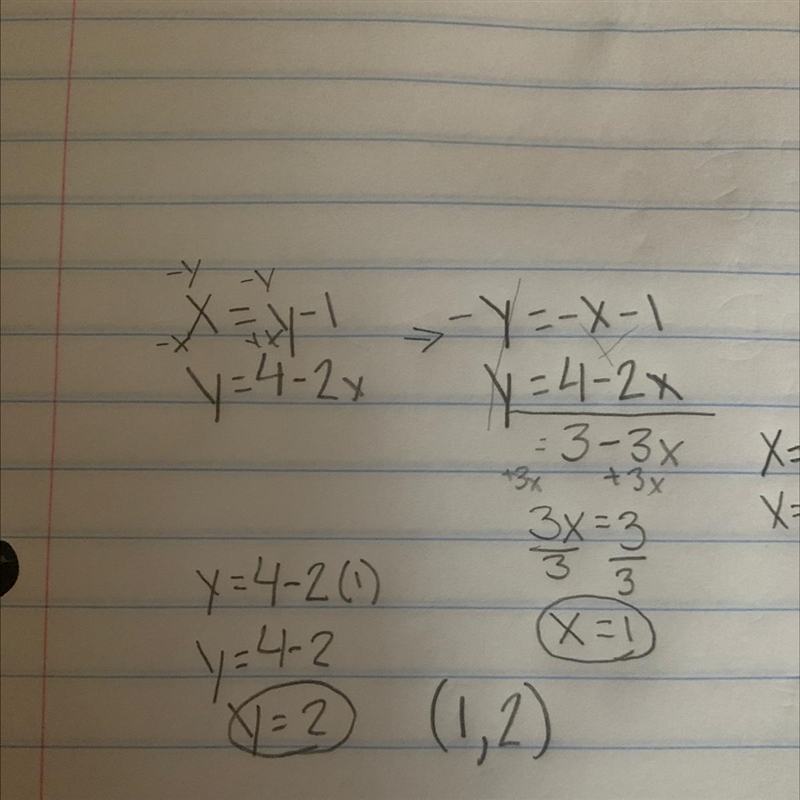 -y -y
x = y - 1
-x +x
y = 4 - 2x
⇒ -y = -x - 1
y = 4 - 2x
= 3 - 3x
+3x +3x
3x = 3
3 3
x = 1
y = 4 - 2(1)
y = 4 - 2
y = 2
(1, 2)
x =
x =